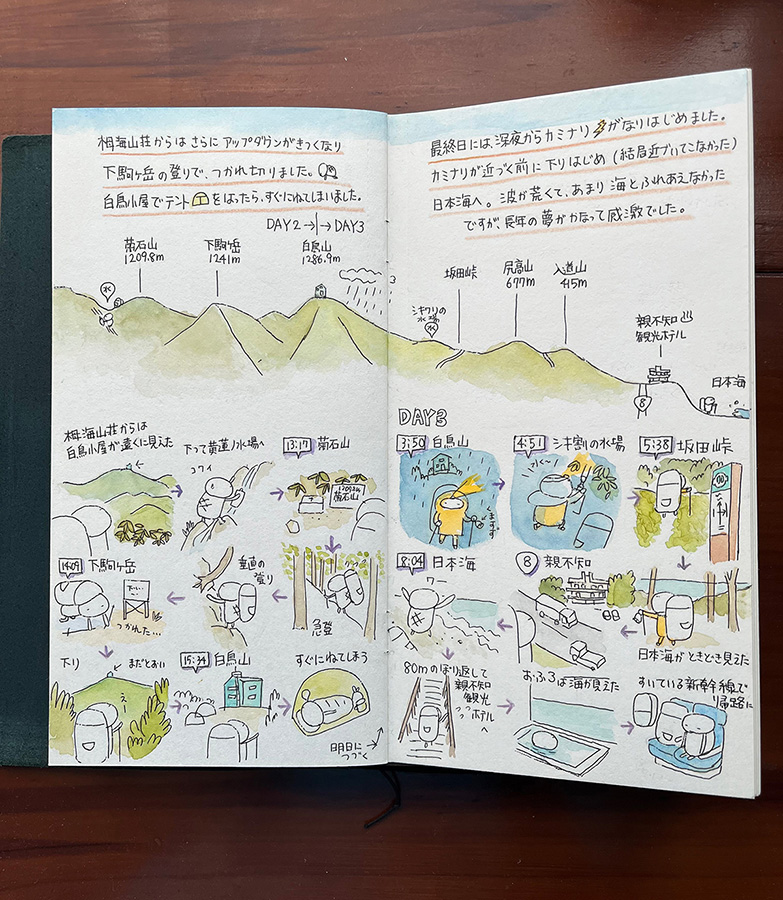 栂海山荘からは さらに アップダウンがきつくなり
下駒ヶ岳の登りで、つかれ切りました。
白鳥小屋でテントをはったら、すぐにねてしまいました。
DAY2→|→DAY3
菊石山
1209.8m
下駒ヶ岳
1241m
白鳥山
1286.9m
水
栂海山荘からは
白鳥小屋が遠くに見えた
下って黄蓮ノ水場へ
コワイ
13:17 菊石山
菊石山
急登
垂直の
登り
14:09 下駒ヶ岳
つかれた…
下り
まだとおい
15:34 白鳥山
すぐにねてしまう
明日に
つづく
最終日には、深夜からカミナリがなりはじめました。
カミナリが近づく前に下りはじめ(結局近づいてこなかった)
日本海へ。波が荒くて、あまり海とふれあえなかった
ですが、長年の夢がかなって感激でした。
シキワリの
水場
水
坂田峠
尻高山
677m
入道山
415m
親不知
観光ホテル
8
日本海
DAY3
3:50 白鳥山
4:51 シキ割の水場
5:38 坂田峠
日本海がときどき見えた
8 親不知
8:04 日本海
ワー
80mのぼり返して
親不知
観光
ホテル
へ
おふろは海が見えた
すいている新幹線で
帰路に